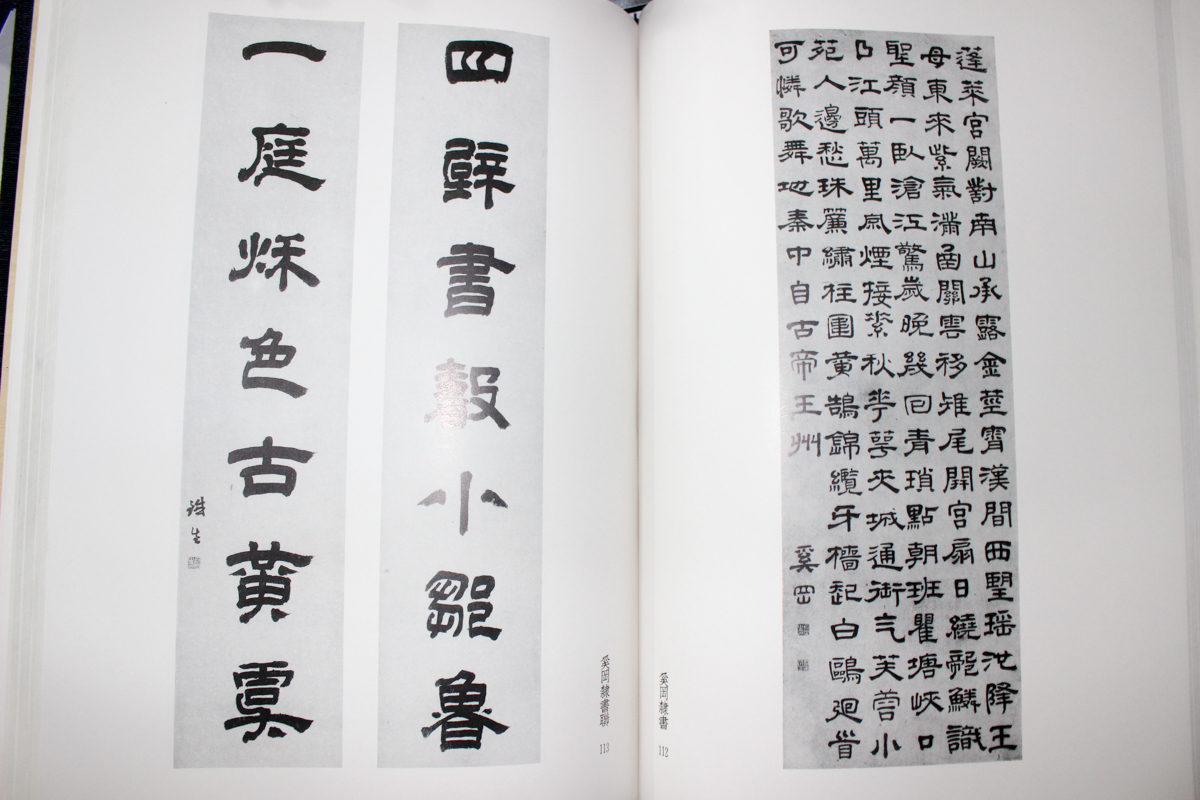 蓬萊宮闕對南山承露金莖霄漢間西望瑤池降王
母東來紫氣滿函關雲移雉尾開宮扇日繞龍鱗識
聖顏一臥滄江驚歲晚幾回青瑣點朝班瞿塘峽口
曲江頭萬里風煙接素秋花萼夾城通御气芙蓉小
苑入邊愁珠簾繡柱圍黃鵠錦纜牙檣起白鷗迴首
可憐歌舞地秦中自古帝王州
奚岡
奚岡隸書 112
四壁書聲小鄒魯
一庭秋色古黃虞
鐵生
奚岡隸書聯 113